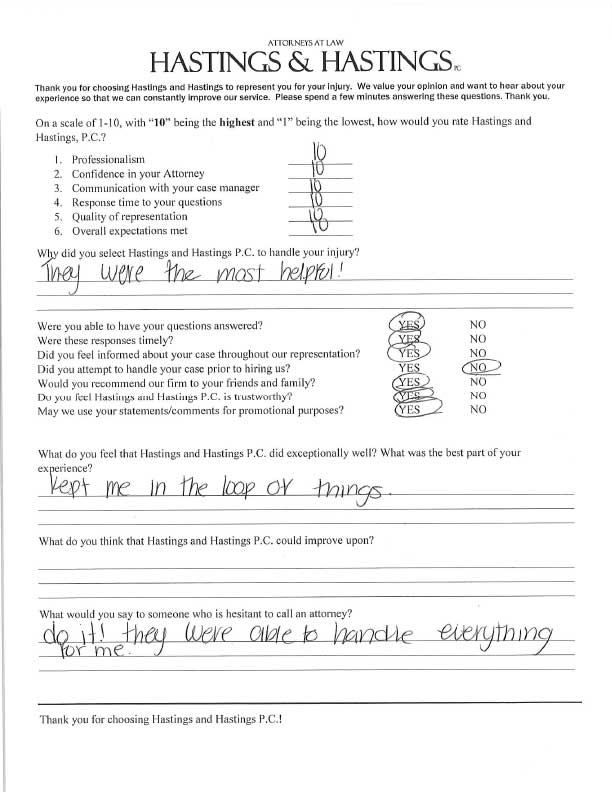 ATTORNEYS AT LAW
HASTINGS & HASTINGS PC
Thank you for choosing Hastings and Hastings to represent you for your injury. We value your opinion and want to hear about your
experience so that we can constantly improve our service. Please spend a few minutes answering these questions. Thank you.
On a scale of 1-10, with “10” being the highest and “1” being the lowest, how would you rate Hastings and
Hastings, P.C.?
1. Professionalism 10
2. Confidence in your Attorney 10
3. Communication with your case manager 10
4. Response time to your questions 10
5. Quality of representation 10
6. Overall expectations met 10
Why did you select Hastings and Hastings P.C. to handle your injury?
They were the most helpful!
Were you able to have your questions answered? YES NO
Were these responses timely? YES NO
Did you feel informed about your case throughout our representation? YES NO
Did you attempt to handle your case prior to hiring us? YES NO
Would you recommend our firm to your friends and family? YES NO
Do you feel Hastings and Hastings P.C. is trustworthy? YES NO
May we use your statements/comments for promotional purposes? YES NO
What do you feel that Hastings and Hastings P.C. did exceptionally well? What was the best part of your
experience?
kept me in the loop of things.
What do you think that Hastings and Hastings P.C. could improve upon?
What would you say to someone who is hesitant to call an attorney?
do it! they were able to handle everything
for me.
Thank you for choosing Hastings and Hastings P.C.!